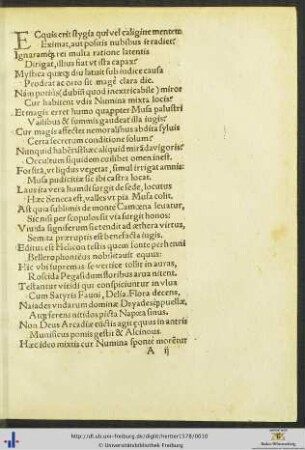 ECquis erit stygia qui vel caligine mentem
Eximat, aut positis nubibus irradiet?
Ignaramq; rei multa ratione latentis
Dirigat, illius fiat vt ista capax?
Mystica quæq; diu latuit sub indice causa
Prodeat ac oīto sit mage clara die.
Nam potius (dubiū quod inextricabile) miror
Cur habitent vdis Numina mixta locis?
Et magis erret humo quappter Musa palustri
Vallibus & summis gaudeat illa iugis?
Cur magis affectet nemoralibus abdita syluis
Certa secretam conditione solum?
Nunquid habēt hæc aliquid mirādi vigoris?
Occultum siquidem cuilibet omen inest.
Forsitā, vt ligdus vegetat, simul irrigat amnis:
Musa pudicitiæ sic ibi castra locat.
Lausita vera humdi surgit de sede, locutus
Hæc Seneca est, valles vt pia Musa colit.
Ast quia sublimis de monte Camœna leuatur,
Sic nisi per scopulos sit via surgit honos:
Viuida signiferum sic tendit ad æthera virtus,
Semita præruptis est benefacta iugis.
Editus est Helicon testis quem fonte perhenni
Bellerophonteus nobilitauit equus:
Hic vbi supremus se vertice tollit in auras,
Roscida Pegasidum floribus arua nitent.
Testantur viridi qui conspiciuntur in vlua
Cum Satyris Fauni, Delia, Flora decens,
Naiades vndarum dominæ Dryadesq; puellæ,
Atq; ferens nitidos picta Napæa sinus.
Non Deus Arcadiæ mictis agit equus in antris
Munificus pomis gestit & Alcinous.
Hæc ideo mixtis cur Numina sponte morētur
A ij
http://dl.ub.uni-freiburg.de/diglit/nettter1378/0010
© Universitätsbibliothek Freiburg
Baden-Württemberg